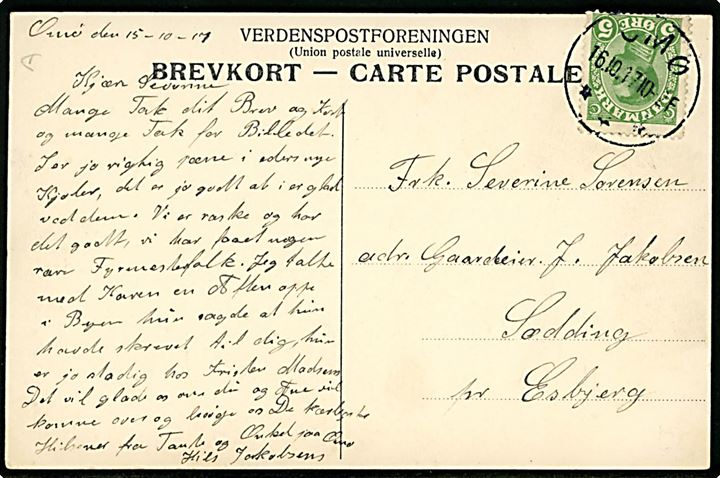 Omö den 15-10-17
VERDENSPOSTFORENINGEN
(Union postale universelle)
BREVKORT — CARTE POSTALE
5 ØRE 5
DANMARK
OMØ
16.10.17.10-
Kjære Severine
Mange Tak dit Brev og Kort
og mange Tak for Billedet.
I er jo rigtig pæne i eders nye
Kjoler, det er jo godt at i er glad
ved dem. Vi er raske og har
det godt, vi har faaet nogen
rare Fyrmesterfolk. Jeg talte
med Karen en Aften oppe
i Byen hun sagde at hun
havde skrevet til dig, hun
er jo stadig hos Madsens
Det vil glæde os om du og vil
komme over og besøge os De kærligste
Hilsener fra Tante og Onkel paa Omø
Hils Jakobsens
Frk. Severine Sørensen
adr. Gaardeier. J. Jakobsen
Sædding
pr Esbjerg